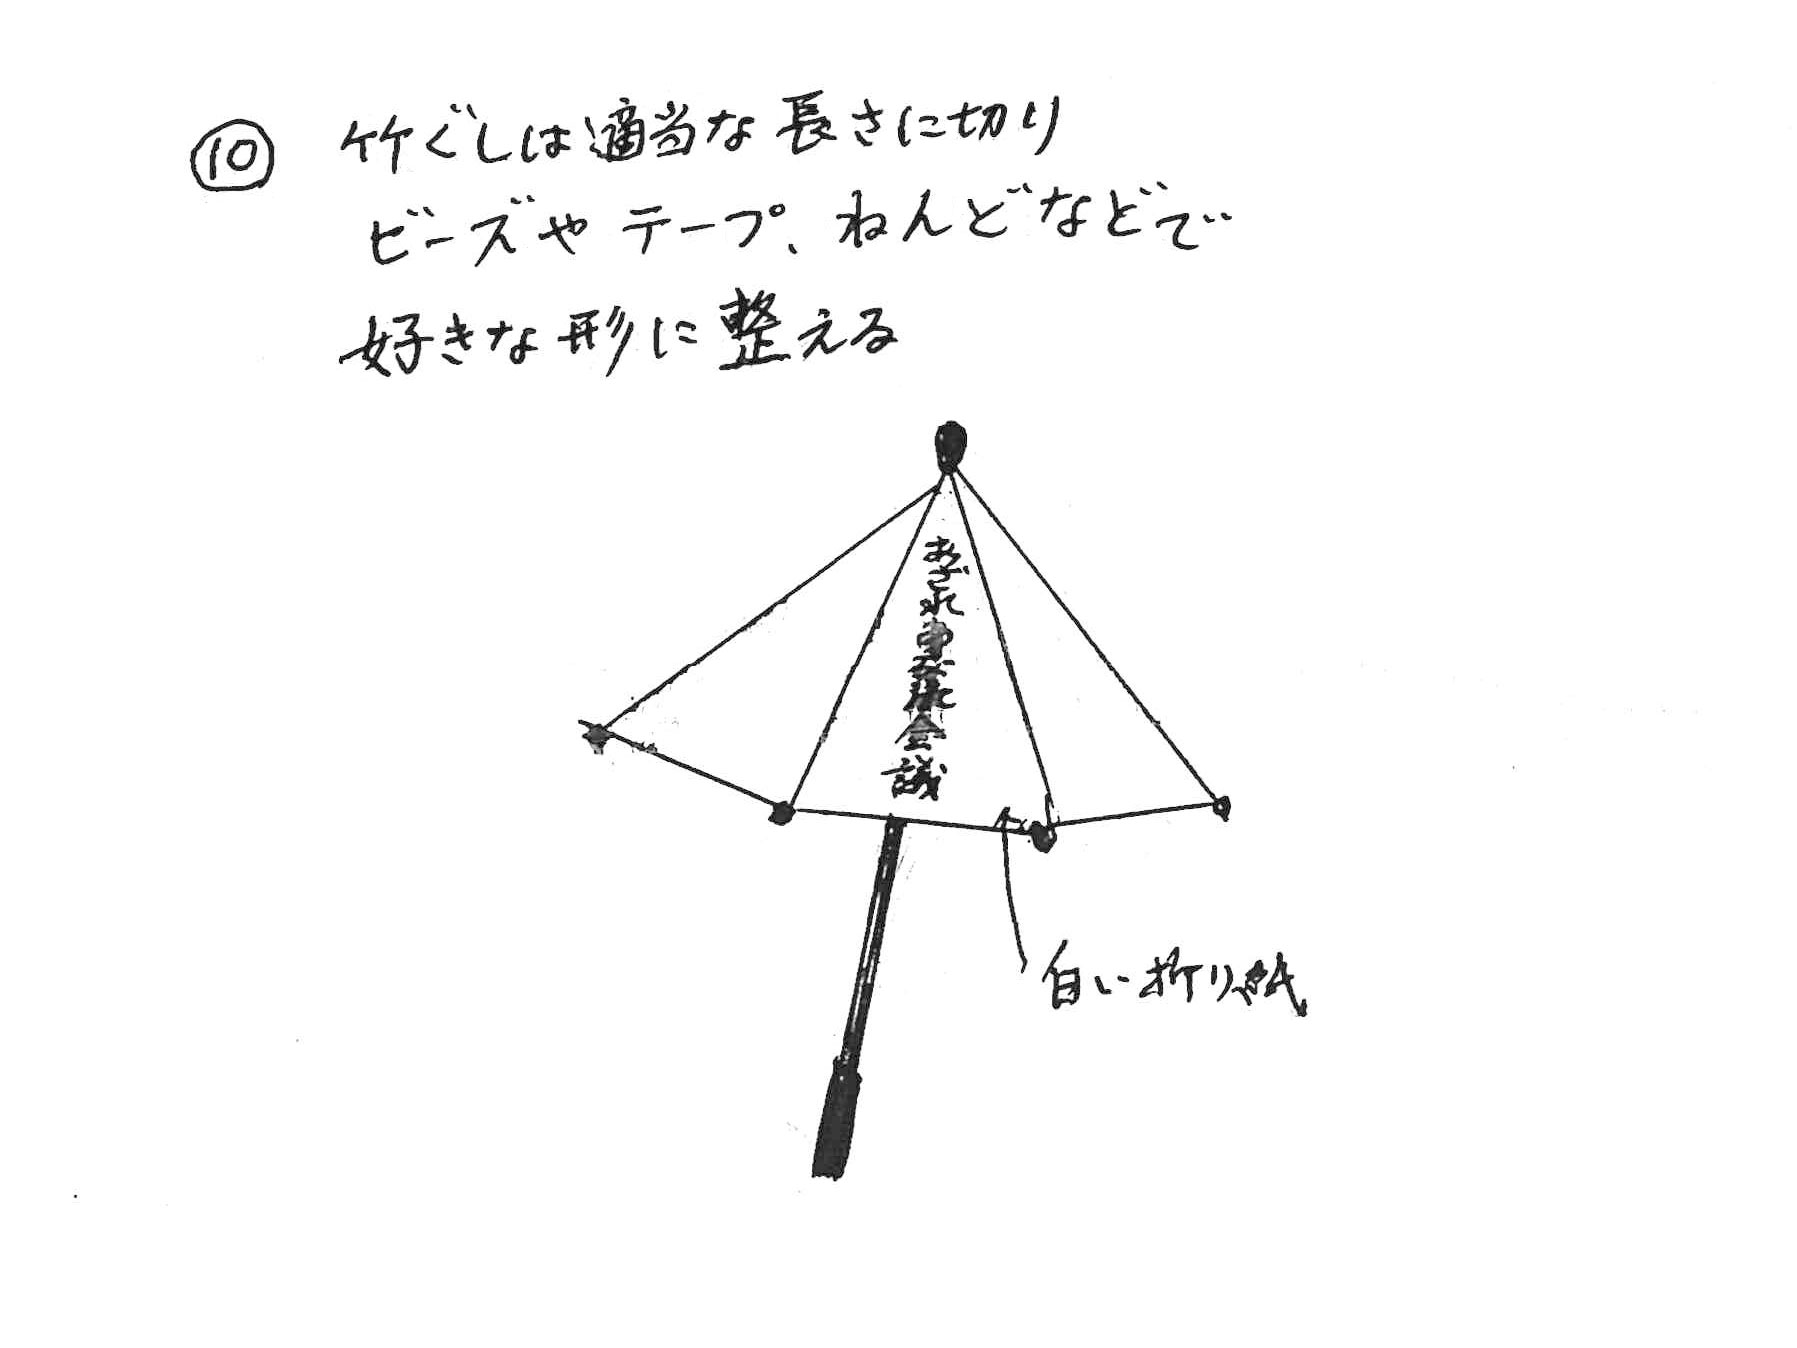 ⑩ 竹ぐしは適当な長さに切り
ビーズやテープ、ねんどなどで
好きな形に整える
会議
白い折り紙